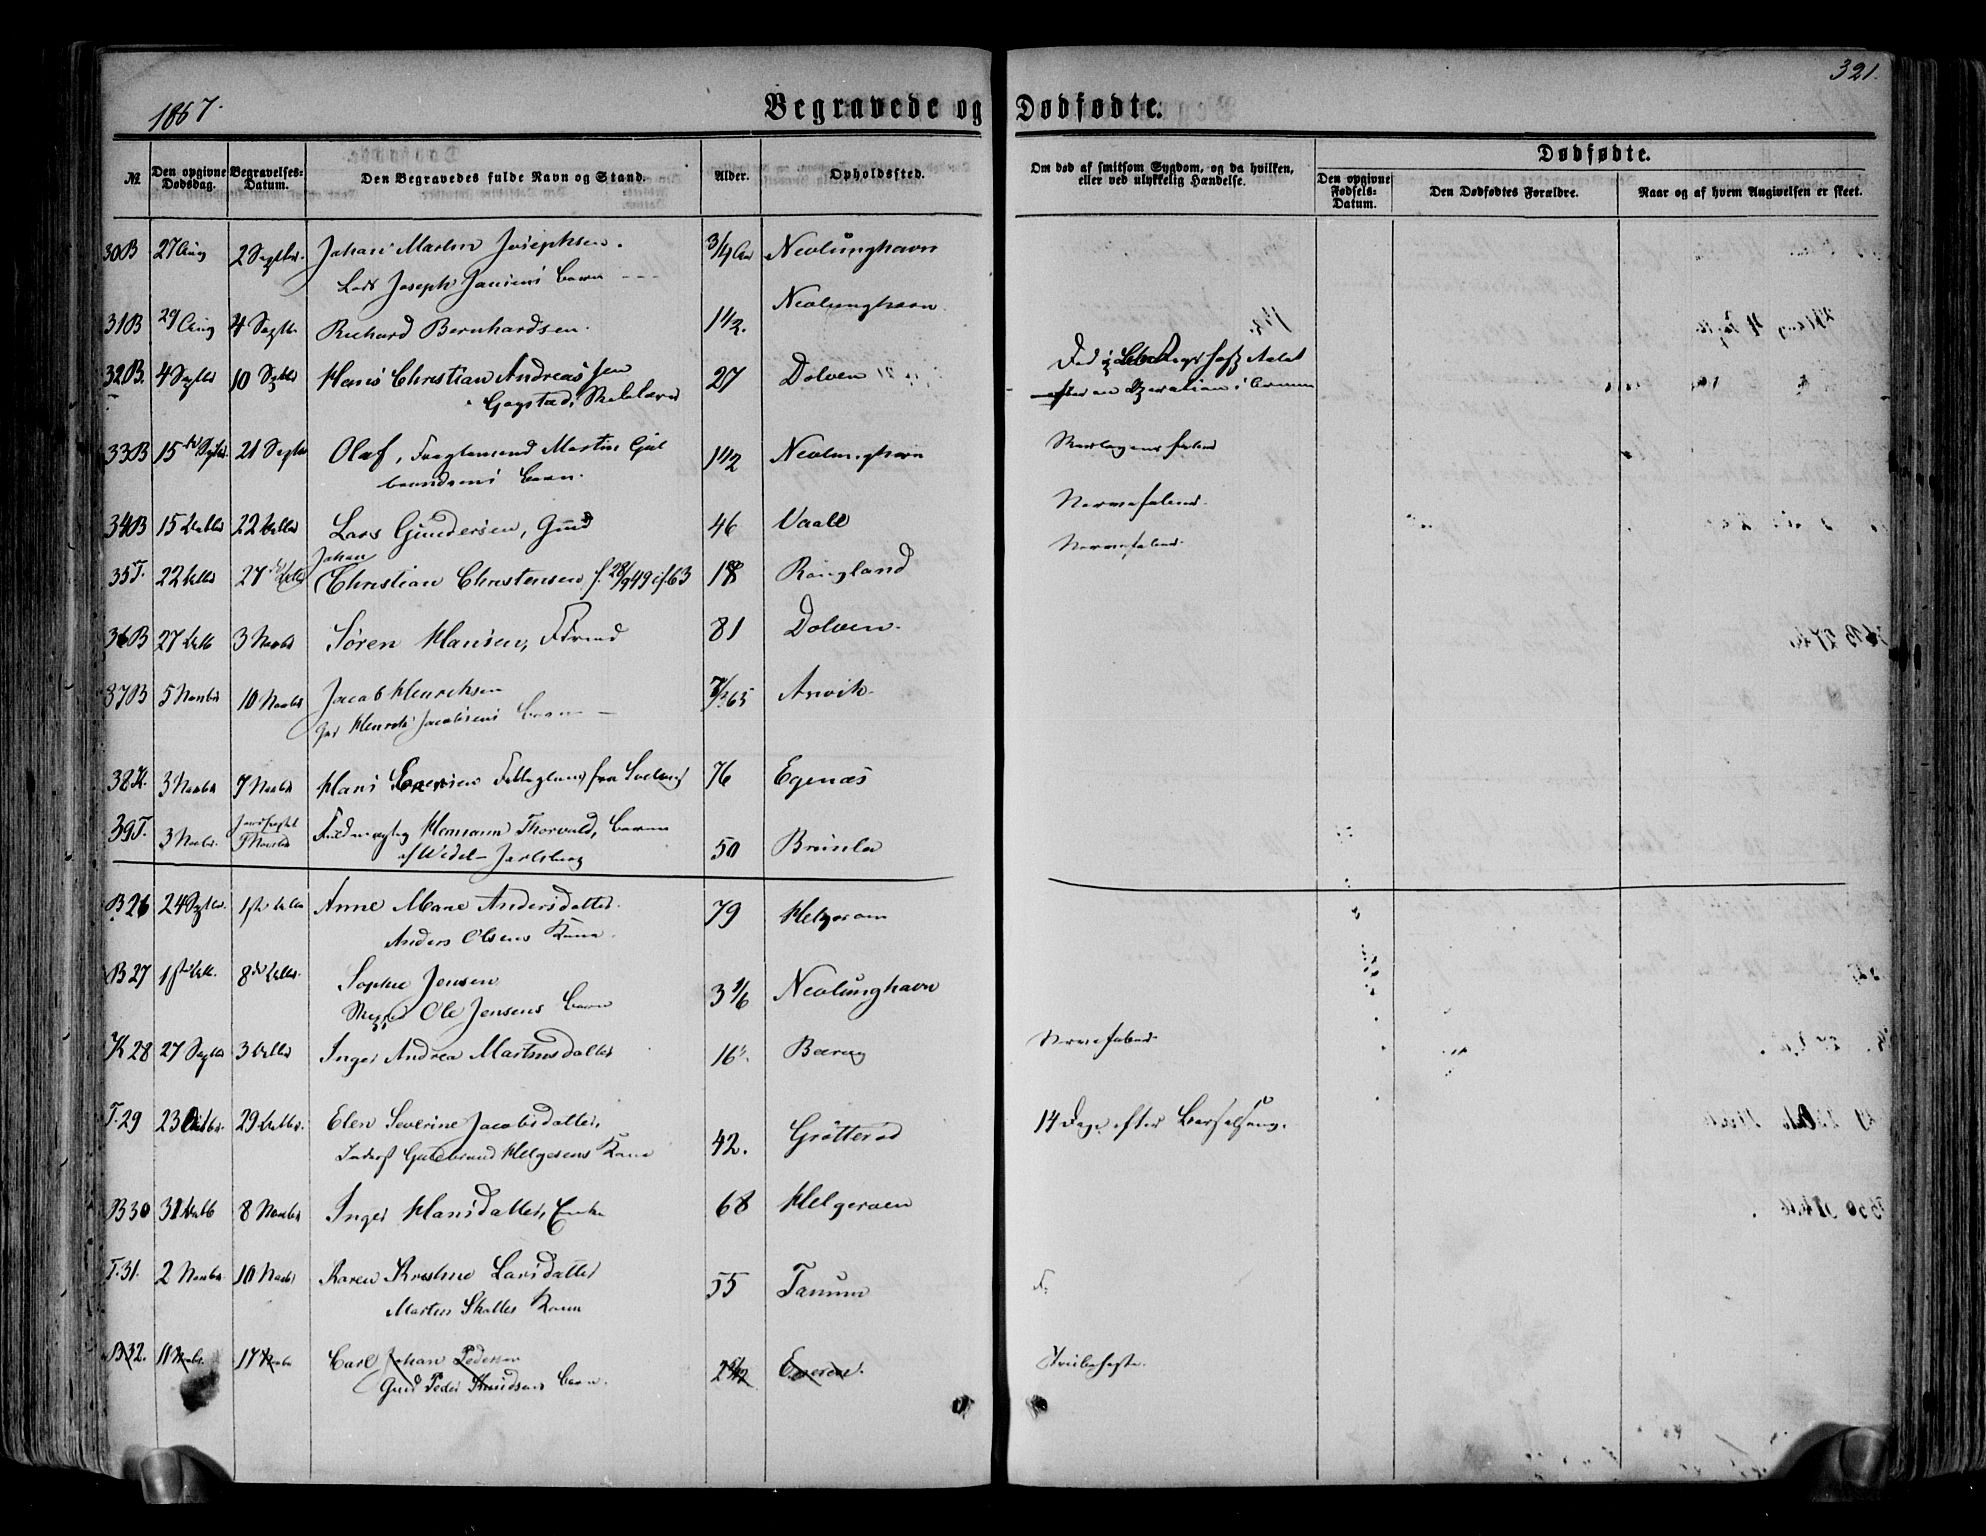 1867.
Begravede og Dødfødte.
321.
№.
Den opgivne Dødsdag.
Begravelses-Datum.
Den Begravedes fulde Navn og Stand.
Alder.
Opholdssted.
Om død af smitsom Sygdom, og da hvilken, eller ved ulykkelig Hændelse.
Dødfødte.
Den opgivne Fødsels-Datum.
Den Dødfødtes Forældre.
Naar og af hvem Angivelsen er skeet.
30B 27 Aug 2 Septbr. Johan Martin Josephsen. 3/4 Aar Nevlunghavn
Lods Joseph Jansens Barn
31B 29 Aug 4 Septbr Richard Bernhardsen. 1 1/2. Nevlunghavn
32B. 4 Septbr 10 Septbr Hans Christian Andreassen 27 Dolven
Gogstad,
efter en Operation i Armen
33B 15 Septbr. 21 Septbr Olaf, Martin Gul 1 1/2 Nevlunghavn
brandsens Barn.
34B 15 Octbr 22 Octbr Lars Gundersen, Gmd 46 Vaale Nervefeber.
35T. 22 Octbr 27 Octbr Johan
Christian Christensen f. 28/9 49 if. 63 18 Rougland Nervefeber.
36B 27 Octb 3 Novbr Søren Hansen, 81 Dolven.
37B 5 Novbr 10 Novbr Jacob Henriksen Arvik.
Henrik Jacobsens Barn
38K. 3 Novbr 7 Novbr Hans fra Svelvig 76 Egenæs
39T. 3 Novbr. Hermann Thorvald, Baron 50 Brunla
af Wedel-Jarlsberg
B 26 24 Septbr. 1ste Octbr Anne Marie Andersdatter. 79 Helgeroen
Anders Olsens Kone.
B 27 1ste Octb. 8de Octbr. Sophie Jensen 3 1/6 Nevlunghavn
Ole Jensens Barn
K 28 27 Septbr 3 Octbr Inger Andrea Martinsdatter 16 Berug Nervefeber.
T. 29 23 Octbr. 29 Octbr. Elen Severine Jacobsdatter, 42. Grøtterød 14 Dage efter Barselseng.
Inderst Guldbrand Helgesens Kone
B 30 31 Octb 8 Novbr Inger Hansdatter, Enke 68 Helgeroen
T. 31. 2 Novbr. 10 Novbr Karen Kristine Larsdatter 55 Tanum
Martin Skallers Kone
B 32. 11 Novbr. 17 Novbr Carl Johan Pedersen Strubehoste.
Gmd Peder Knudsens Barn.